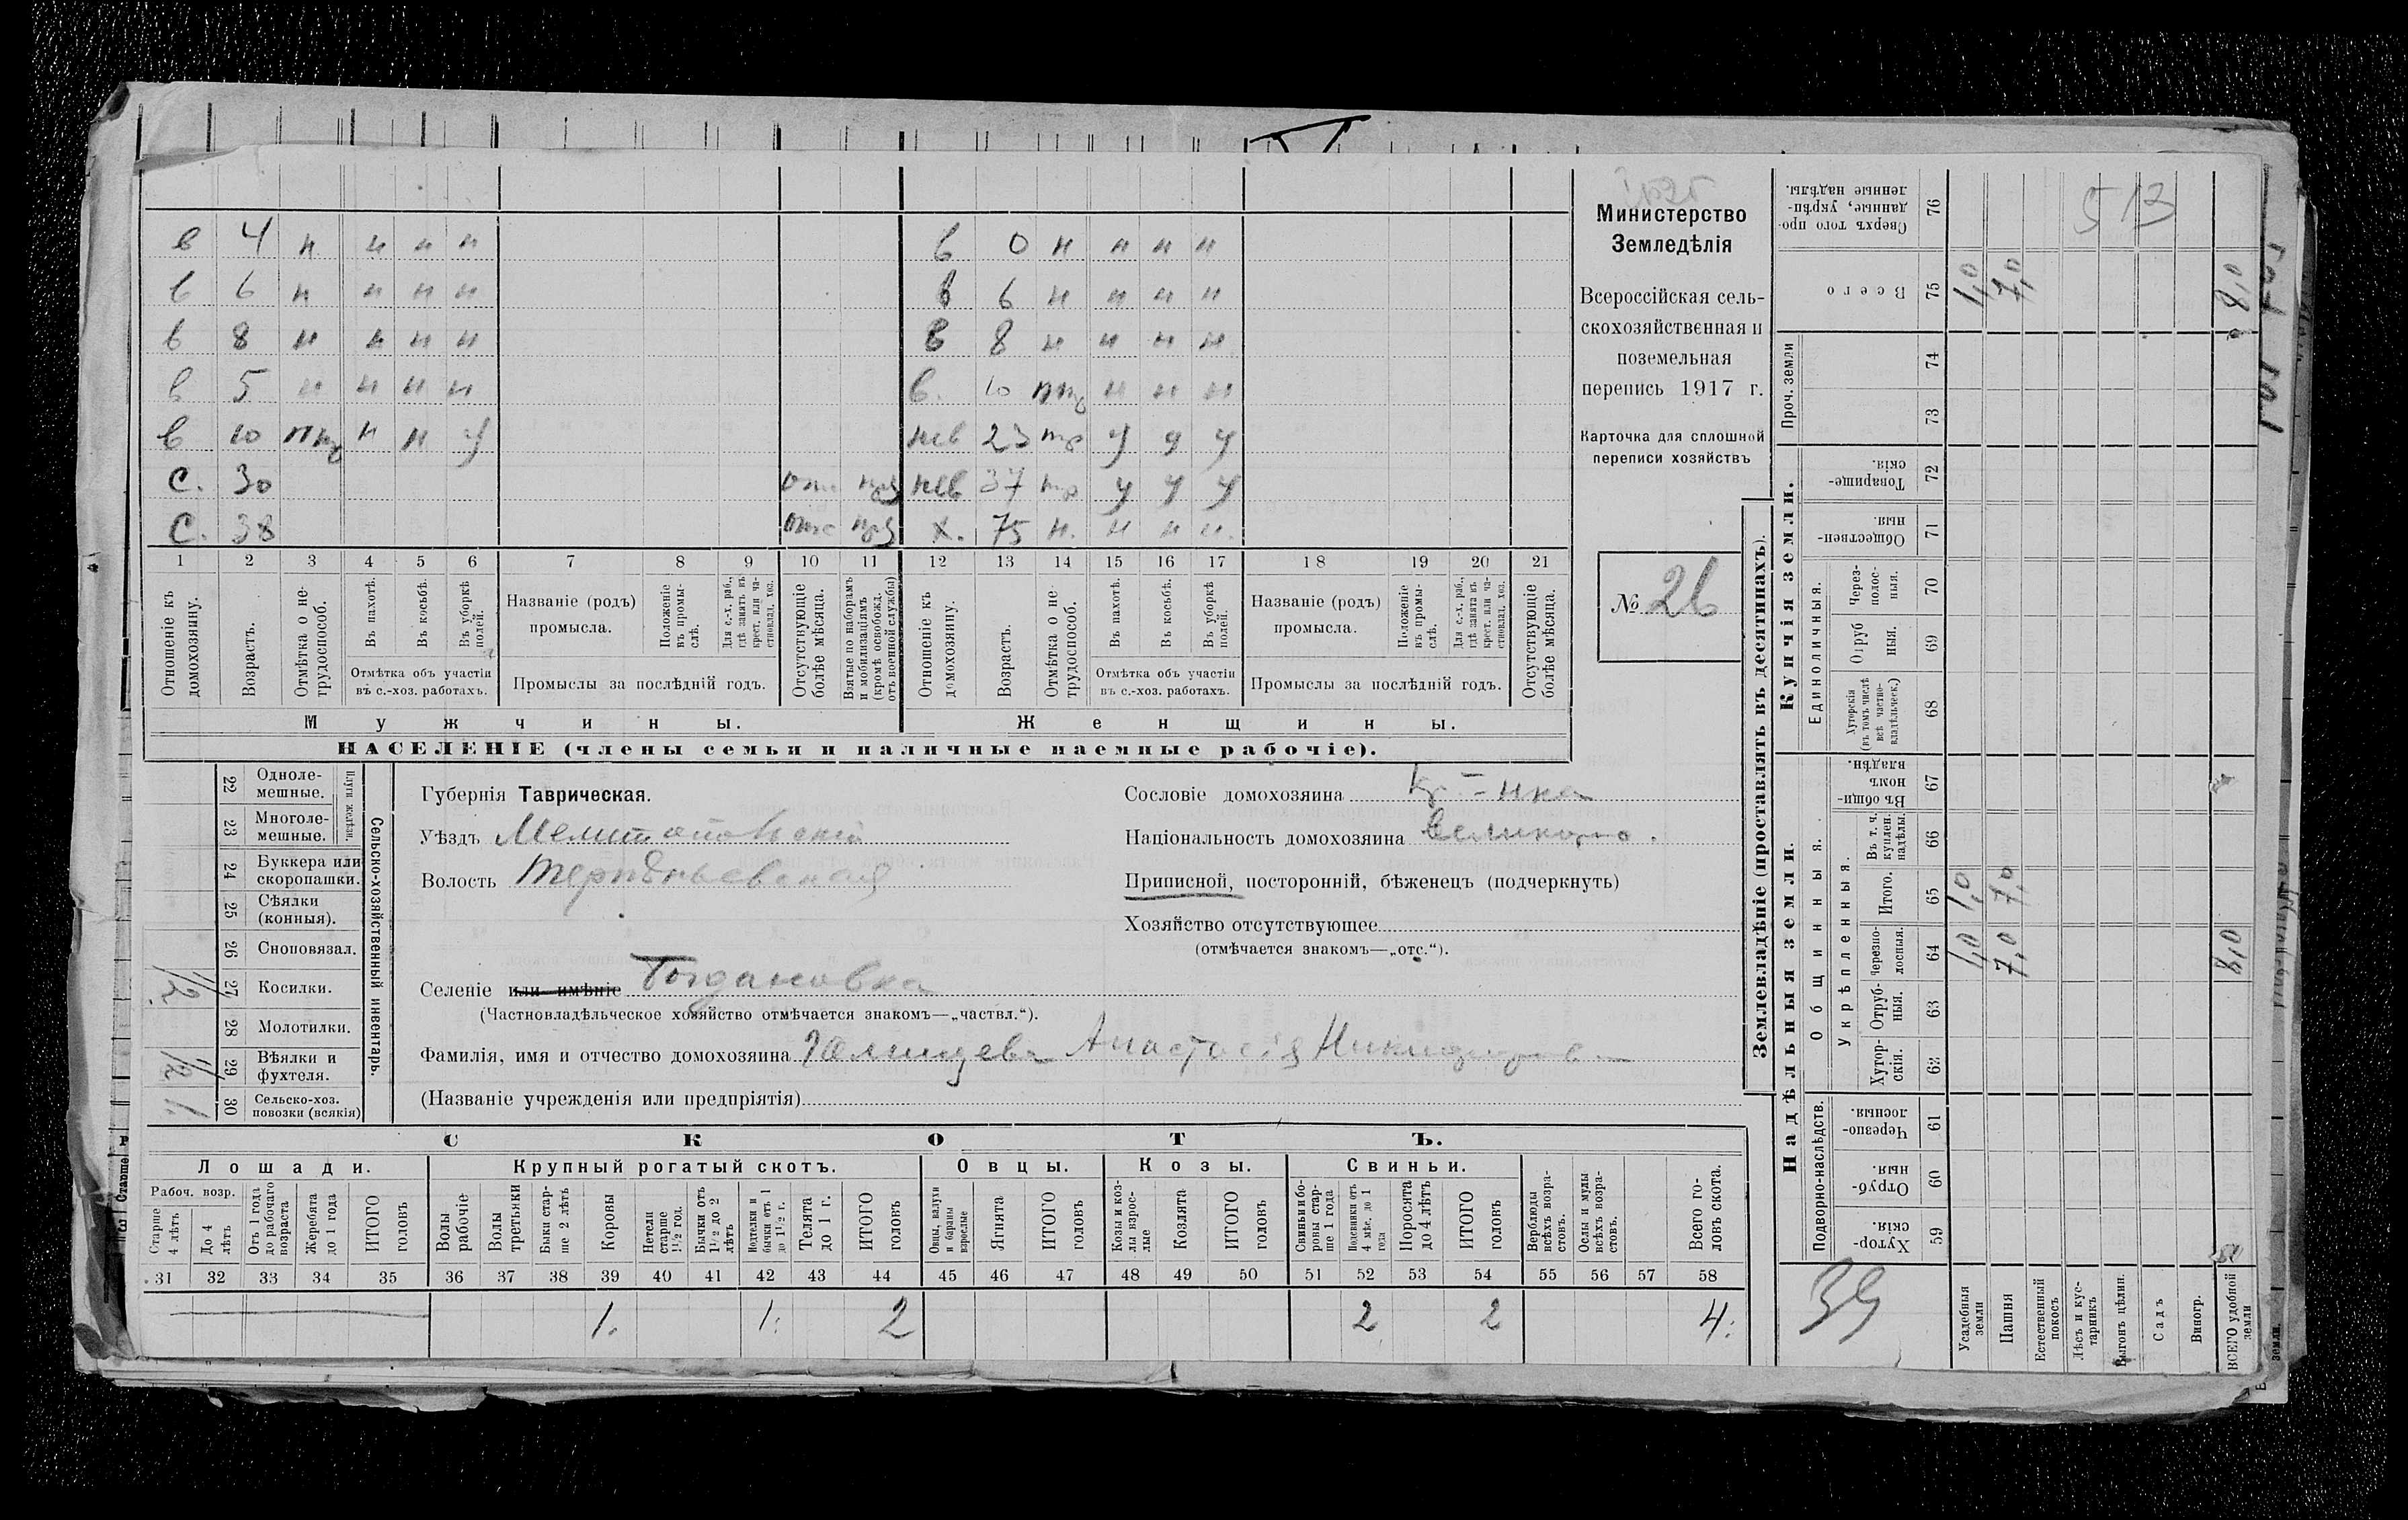 в 4 н н н н в 0 н н н н
в 6 н н н н в 6 н н н н
в 8 н н н н в 8 н н н н
в 5 н н н н в. 10 н н н
в 10 н н у нев 23 тр у у у
С. 30 нев 37 тр у у у
С. 38 х. 75 н. н н н.
1 2 3 4 5 6 7 8 9 10 11 12 13 14 15 16 17 18 19 20 21
Отношеніе къ домохозяину.
Возрастъ.
Отмѣтка о нетрудоспособ.
Въ пахотѣ.
Въ косьбѣ.
Въ уборкѣ полей.
Отмѣтка объ участіи въ с.-хоз. работахъ.
Названіе (родъ) промысла.
Положеніе въ промы-слѣ.
Для с.-х. раб., гдѣ занятъ въ крест. или ча-стновлад. хоз.
Промыслы за послѣдній годъ.
Отсутствующіе болѣе мѣсяца.
Взятые по наборамъ и мобилизаціямъ (кромѣ освобожд. отъ военной службы)
Отношеніе къ домохозяину.
Возрастъ.
Отмѣтка о не-трудоспособ.
Въ пахотѣ.
Въ косьбѣ.
Въ уборкѣ полей.
Отмѣтка объ участіи въ с.-хоз. работахъ.
Названіе (родъ) промысла.
Положеніе въ промы-слѣ.
Для с.-х. раб., гдѣ занята въ крест. или ча-стновлад. хоз.
Промыслы за послѣдній годъ.
Отсутствующіе болѣе мѣсяца.
Мужчины. Женщины.
НАСЕЛЕНІЕ (члены семьи и наличные наемные рабочіе).
Министерство
Земледѣлія
Всероссійская сель-
скохозяйственная и
поземельная
перепись 1917 г.
Карточка для сплошной
переписи хозяйствъ
№ 26
22 Одноле-мешные.
23 Многоле-мешные.
Плуги желѣзн.
24 Буккера или скоропашки.
25 Сѣялки (конныя).
26 Сноповязал.
27 Косилки. 1/2.
28 Молотилки.
29 Вѣялки и фухтеля. 1/2
30 Сельско-хоз. повозки (всякія) 1.
Сельско-хозяйственный инвентарь.
Губернія Таврическая.
Уѣздъ Мелитопольскій
Волость Терпѣньевская
Селеніе или имѣніе Богдановка
(Частновладѣльческое хозяйство отмѣчается знакомъ—„частвл.“).
Фамилія, имя и отчество домохозяина Анастасія
(Названіе учрежденія или предпріятія)
Сословіе домохозяина кр-нка
Національность домохозяина великоро.
Приписной, посторонній, бѣженецъ (подчеркнуть)
Хозяйство отсутствующее
(отмѣчается знакомъ—„отс.“).
СКОТЪ.
Лошади. Крупный рогатый скотъ. Овцы. Козы. Свиньи.
Рабоч. возр.
Старше 4 лѣтъ
До 4 лѣтъ
Отъ 1 года до рабочаго возраста
Жеребята до 1 года
ИТОГО головъ
Волы рабочіе
Волы третьяки
Быки стар-ше 2 лѣтъ
Коровы
Нетели старше 1½ год.
Бычки отъ 1½ до 2 лѣтъ
Подтелки и бычки отъ 1 до 1½ г.
Телята до 1 г.
ИТОГО головъ
Овцы, валухи и бараны взрослые
Ягнята
ИТОГО головъ
Козы и коз-лы взрос-лые
Козлята
ИТОГО головъ
Свиньи и бо-ровы стар-ше 1 года
Подсвинки отъ 4 мѣс. до 1 года
Поросята до 4 лѣтъ
ИТОГО головъ
Верблюды всѣхъ возра-стовъ.
Ослы и мулы всѣхъ возра-стовъ.
Всего го-ловъ скота.
31 32 33 34 35 36 37 38 39 40 41 42 43 44 45 46 47 48 49 50 51 52 53 54 55 56 57 58
1. 1. 2 2 2 4.
Землевладѣніе (проставлять въ десятинахъ).
Надѣльныя земли. Купчія земли.
Подворно-наслѣдств.
Общинныя.
Укрѣпленныя.
Единоличныя.
Проч. земли
Сверхъ того про-данные, укрѣп-ленные надѣлы. 76
Всего 75 1,0 7,0 8,0
74
73
Товарище-скія. 72
Обществен-ныя. 71
Через-полос-ныя. 70
Отруб-ныя. 69
Хуторскія (въ томъ числѣ всѣ частно-владѣльческ.) 68
Въ общи-номъ владѣн. 67
Въ т. ч. куплен. надѣлы. 66
Итого. 65 1,0 7,0
Черезпо-лосныя. 64 1,0 7,0 8,0
Отруб-ныя. 63
Хутор-скія. 62
Черезпо-лосныя. 61
Отруб-ныя. 60
Хутор-скія. 59
Усадебныя земли
Пашня
Естественный покосъ
Лѣсъ и кус-тарникъ
Выгонъ цѣлин.
Садъ
Виногр.
ВСЕГО удобной земли
513
39